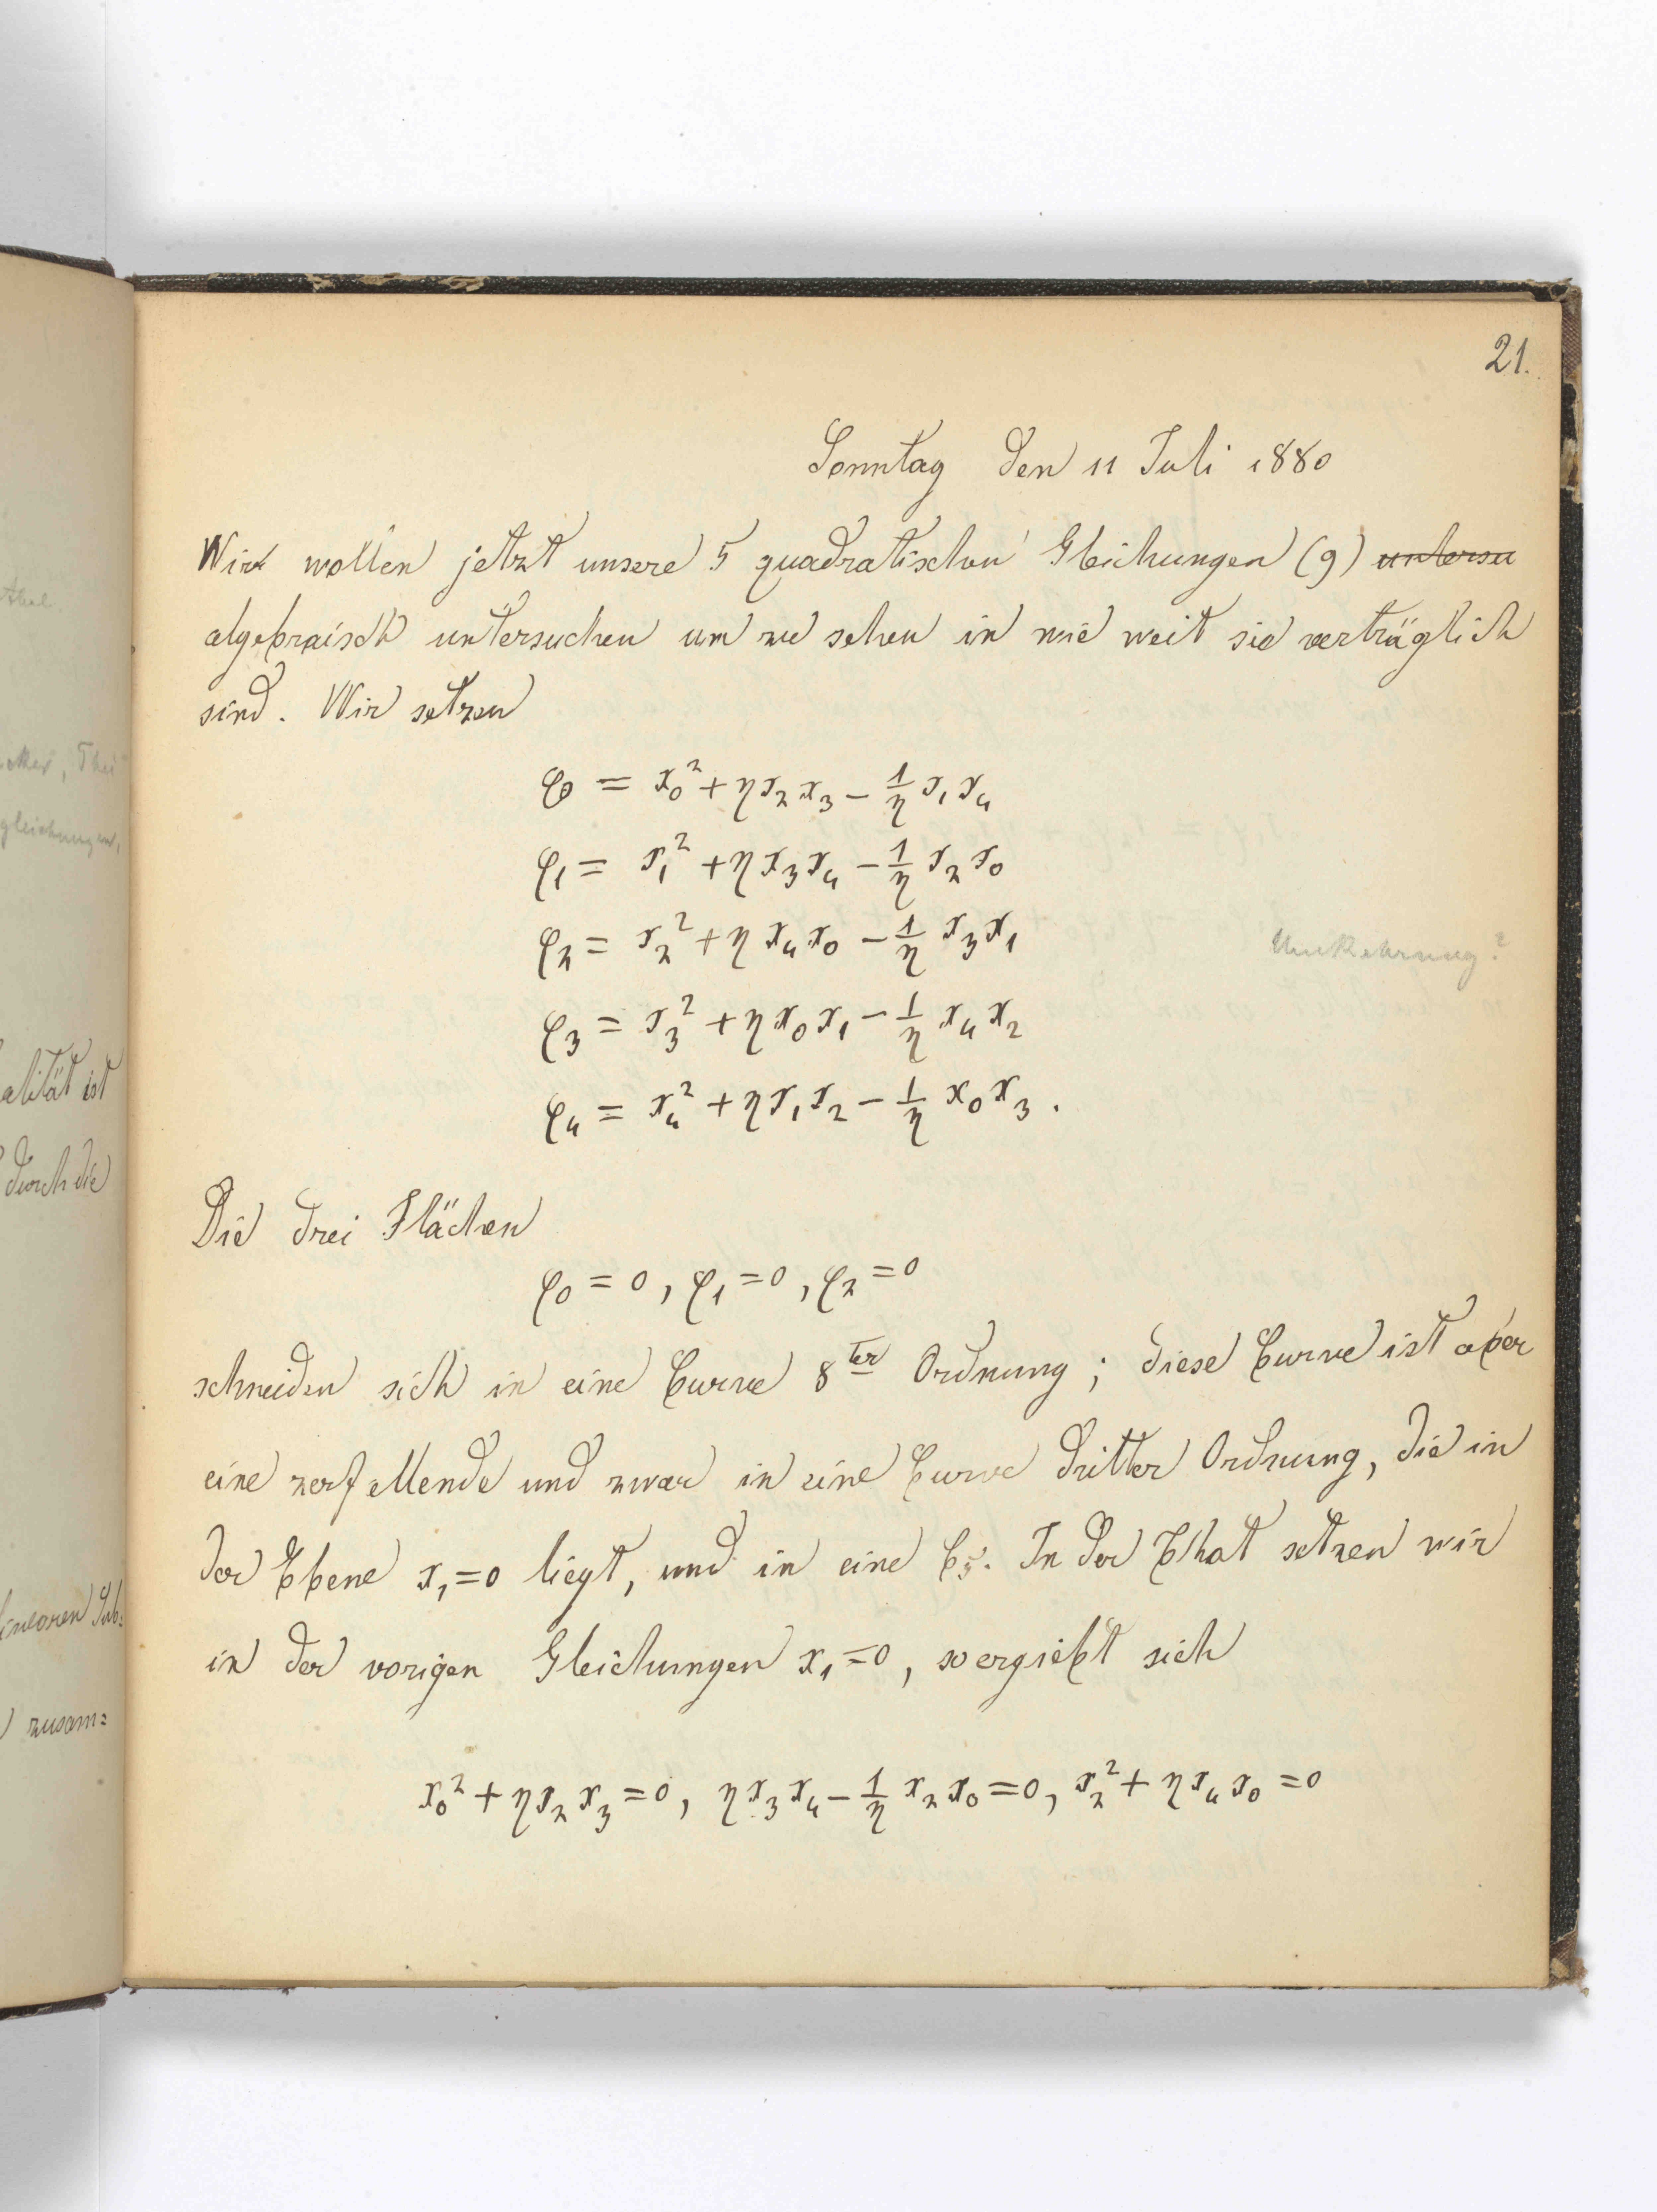 21.
Sonntag den 11 Juli 1880
Wir wollen jetzt unsere 5 quadratischen Gleichungen (9) untersu
algebraisch untersuchen um zu sehen in wie weit sie verträglich
sind. Wir setzen
φ0 = x₀² + ηx₂x₃ − 1/η x₁x₄
φ₁ = x₁² + ηx₃x₄ − 1/η x₂x₀
φ₂ = x₂² + ηx₄x₀ − 1/η x₃x₁
Umkehrung?
φ₃ = x₃² + ηx₀x₁ − 1/η x₄x₂
φ₄ = x₄² + ηx₁x₂ − 1/η x₀x₃.
Die drei Flächen
φ₀ = 0, φ₁ = 0, φ₂ = 0
schneiden sich in eine Curve 8ter Ordnung; diese Curve ist aber
eine zerfallende und zwar in eine Curve dritter Ordnung, die in
der Ebene x₁=0 liegt, und in eine C₅. In der That setzen wir
in der vorigen Gleichungen x₁=0, so ergiebt sich
x₀² + ηx₂x₃ = 0, ηx₃x₄ − 1/η x₂x₀ = 0, x₂² + ηx₄x₀ = 0
gleichungen,
alität ist
durch die
linearen Sub=
zusam=